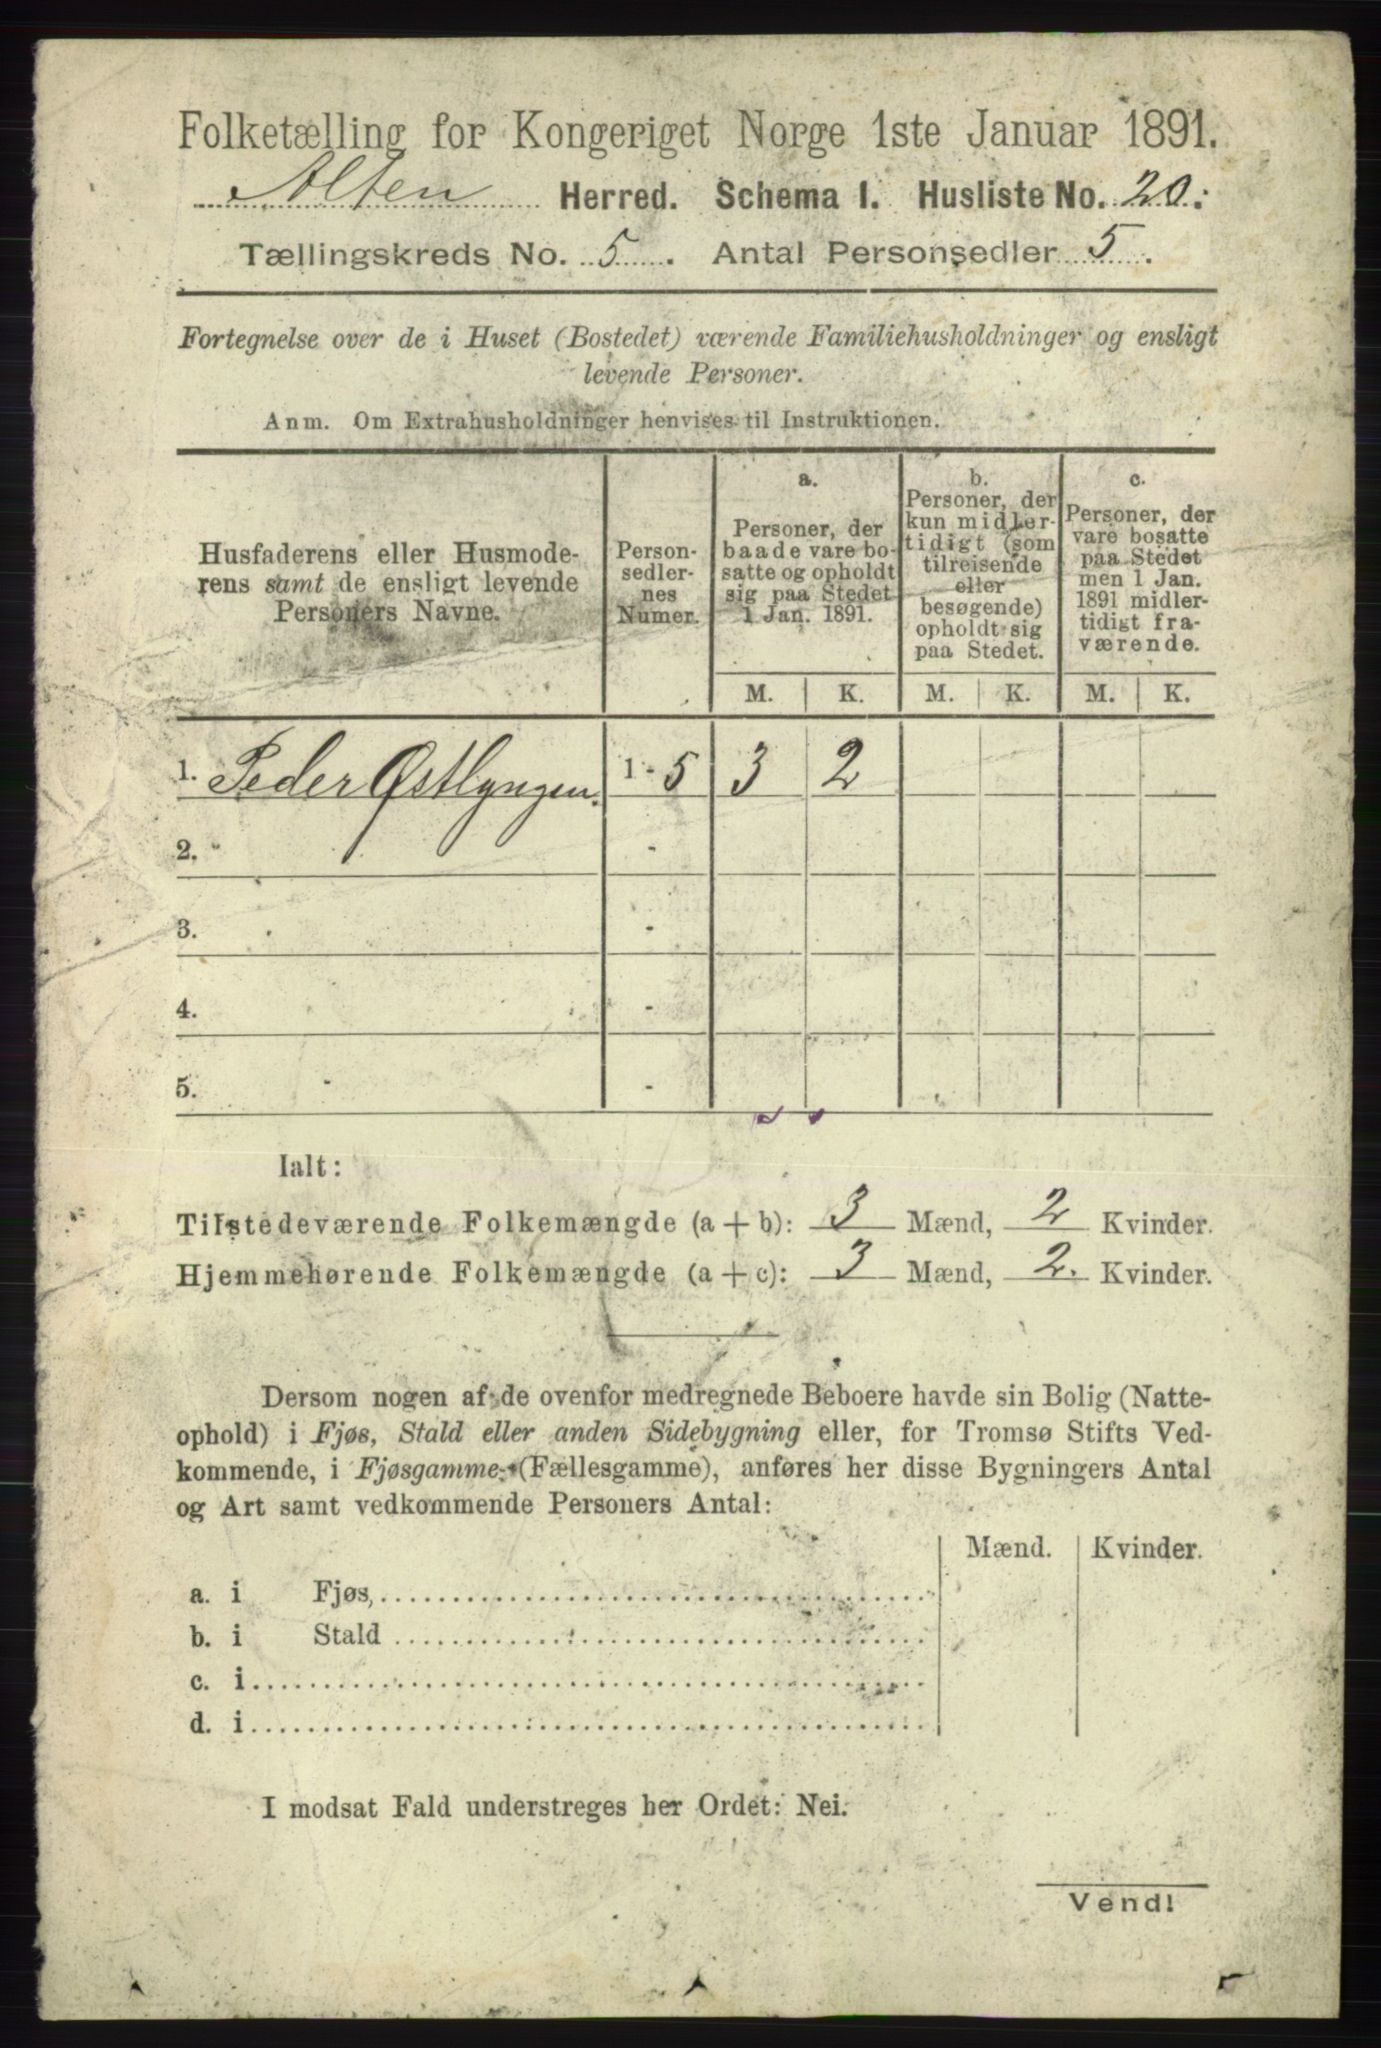 Folketælling for Kongeriget Norge 1ste Januar 1891.
Alten Herred. Schema I. Husliste No. 20.
Tællingskreds No. 5. Antal Personsedler 5.
Fortegnelse over de i Huset (Bostedet) værende Familiehusholdninger og ensligt
levende Personer.
Anm. Om Extrahusholdninger henvises til Instruktionen.
Husfaderens eller Husmode-
rens samt de ensligt levende
Personers Navne.
Person-
sedler-
nes
Numer.
a.
Personer, der
baade vare bo-
satte og opholdt
sig paa Stedet
1 Jan. 1891.
b.
Personer, der
kun midler-
tidigt (som
tilreisende
eller
besøgende)
opholdt sig
paa Stedet.
c.
Personer, der
vare bosatte
paa Stedet
men 1 Jan.
1891 midler-
tidigt fra-
værende.
M. K. M. K. M. K.
1. Peder Østlyngen. 1 - 5 3 2
2. -
3. -
4. -
5. -
Ialt:
Tilstedeværende Folkemængde (a + b): 3 Mænd, 2 Kvinder.
Hjemmehørende Folkemængde (a + c): 3 Mænd, 2. Kvinder.
Dersom nogen af de ovenfor medregnede Beboere havde sin Bolig (Natte-
ophold) i Fjøs, Stald eller anden Sidebygning eller, for Tromsø Stifts Ved-
kommende, i Fjøsgamme (Fællesgamme), anføres her disse Bygningers Antal
og Art samt vedkommende Personers Antal:
Mænd. Kvinder.
a. i Fjøs,
b. i Stald
c. i
d. i
I modsat Fald understreges her Ordet: Nei.
Vend!